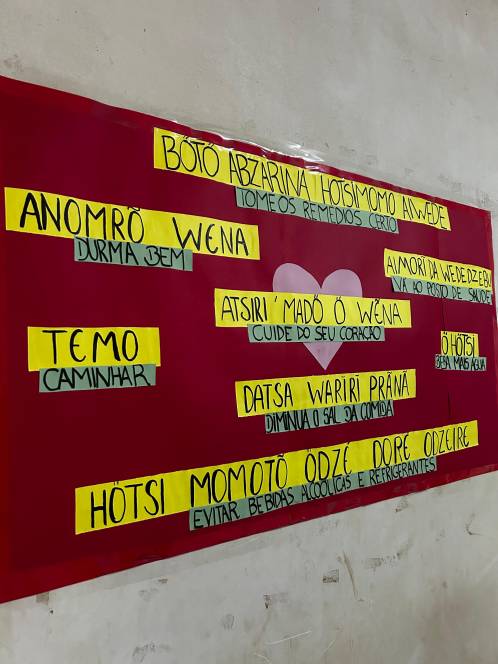 BÖTÖ ABZARINA 'HÖTSIMOMO AIWEDE
TOMEOS REMEDIOS CERTO
ANOMRÕ WENA
DURMA BEM
AIMORI DA WEDEDZEBU
VÁ AO POSTO DE SAÚDE
ATSIRI 'MADÖ Ö WẼNA
CUIDE DO SEU CORAÇÃO
TEMO
CAMINHAR
Ö HÖTSI
BEBA MAIS ÁGUA
DATSA WARIRI PRÃNÃ
DIMINUA O SAL DA COMIDA
HÖTSI MOMOTÕ ÖDZÉ DORÉ ODZEIRE
EVITAR BEBIDAS ALCOÓLICAS E REFRIGERANTES